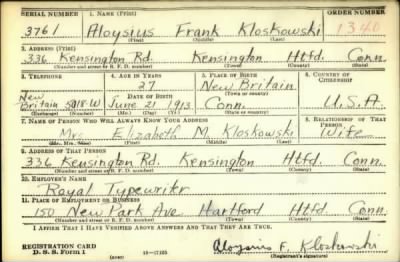 SERIAL NUMBER 1. NAME (Print) ORDER NUMBER
3761 Aloysius Frank Kloskowski 1340
(First) (Middle) (Last)
2. ADDRESS (Print)
336 Kensington Rd. Kensington Htfd. Conn.
(Number and street or R. F. D. number) (Town) (County) (State)
3. TELEPHONE 4. AGE IN YEARS 5. PLACE OF BIRTH 6. COUNTRY OF CITIZENSHIP
27 New Britain
DATE OF BIRTH (Town or county)
New Britain 5018-W June 21 1913 Conn. U.S.A.
(Exchange) (Number) (Mo.) (Day) (Yr.) (State or country)
7. NAME OF PERSON WHO WILL ALWAYS KNOW YOUR ADDRESS 8. RELATIONSHIP OF THAT PERSON
Mrs. Elizabeth M. Kloskowski Wife
(Mr., Mrs., Miss) (First) (Middle) (Last)
9. ADDRESS OF THAT PERSON
336 Kensington Rd. Kensington Htfd. Conn.
(Number and street or R. F. D. number) (Town) (County) (State)
10. EMPLOYER'S NAME
Royal Typewriter
11. PLACE OF EMPLOYMENT OR BUSINESS
150 New Park Ave Hartford Htfd. Conn.
(Number and street or R. F. D. number) (Town) (County) (State)
I AFFIRM THAT I HAVE VERIFIED ABOVE ANSWERS AND THAT THEY ARE TRUE.
REGISTRATION CARD
D. S. S. Form 1 Aloysius F. Kloskowski
(over) (Registrant's signature)